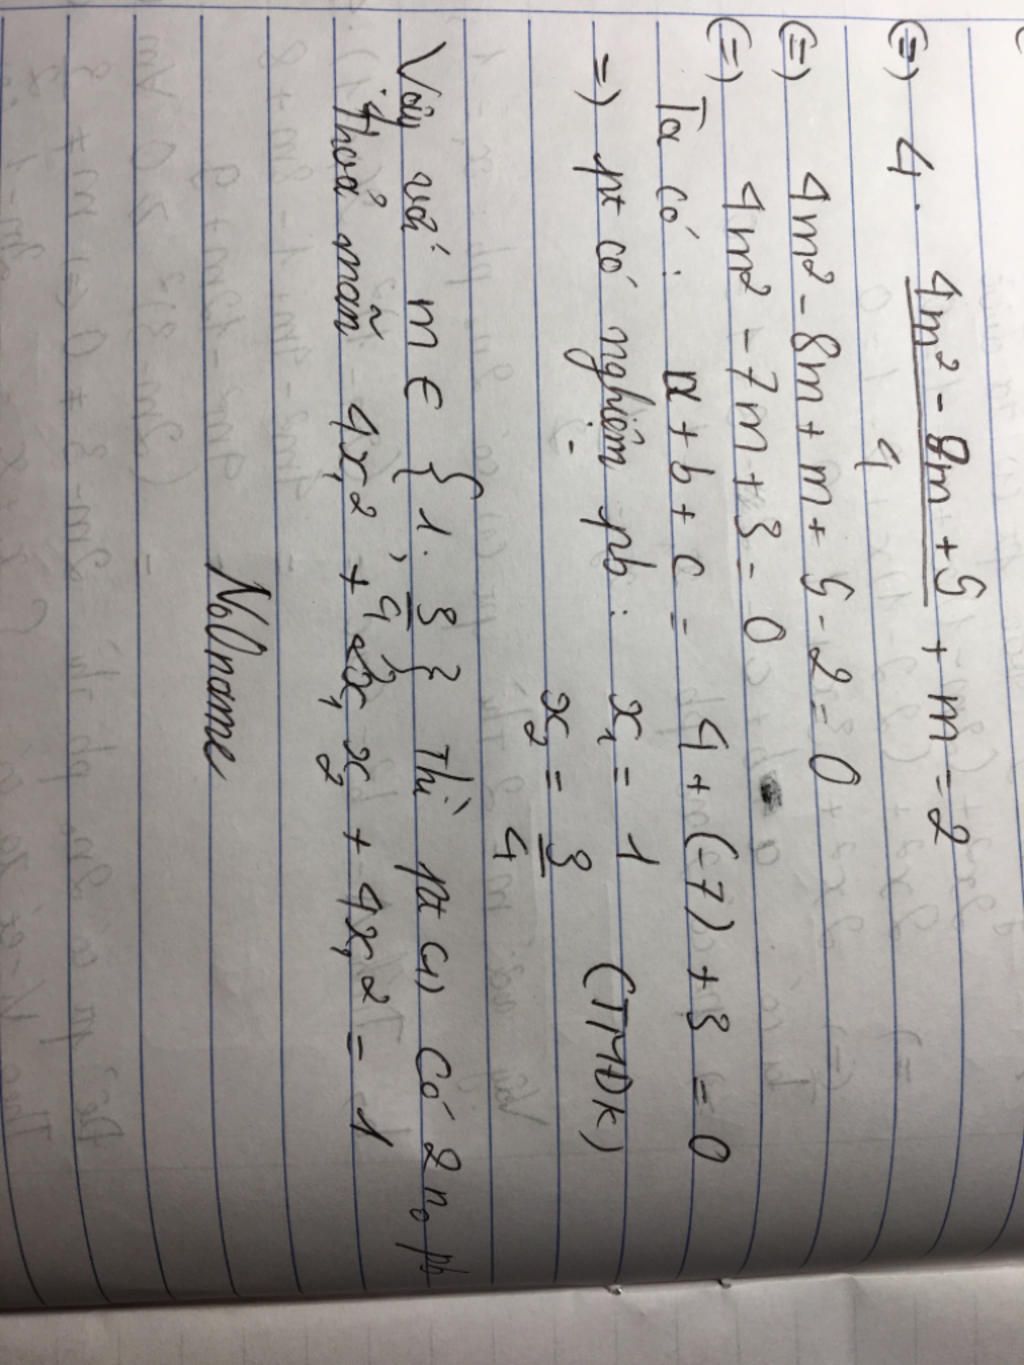 (=) 4. (4m² - 8m + 5)/4 + m = 2
(=) 4m² - 8m + m + 5 - 2 = 0
(=) 4m² - 7m + 3 = 0
Ta có: a + b + c = 4 + (-7) + 3 = 0
=) pt có nghiệm pb: x₁ = 1
x₂ = 3/4 (TMĐK)
Vậy với m ∈ {1, 3/4} Thì pt (1) có 2 n₀ pb
thoả mãn 4x₁² + 2x₁x₂ + 4x₁2 = 1
No Uname